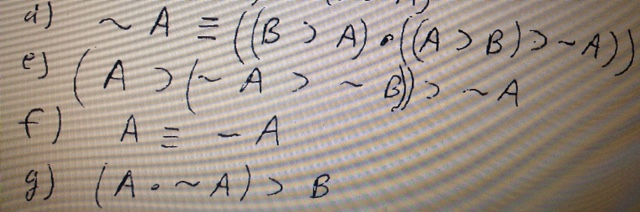 d) ~ A ≡ ((B ⊃ A) • ((A ⊃ B) ⊃ ~A))
e) (A ⊃ (~ A ⊃ ~ B)) ⊃ ~ A
f) A ≡ - A
g) (A • ~ A) ⊃ B